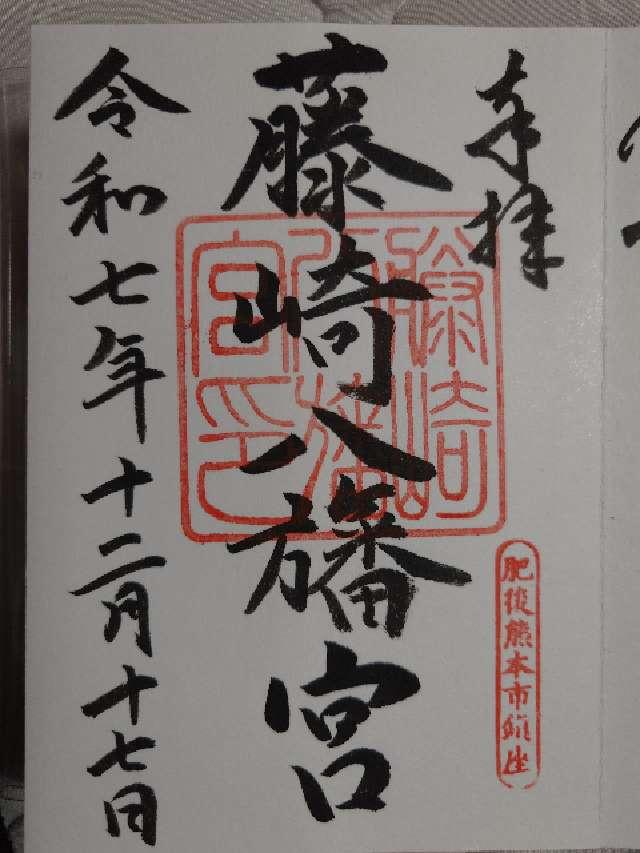 奉拝
藤崎八旛宮
藤崎八旛宮印
肥後熊本市鎮座
令和七年十二月十七日